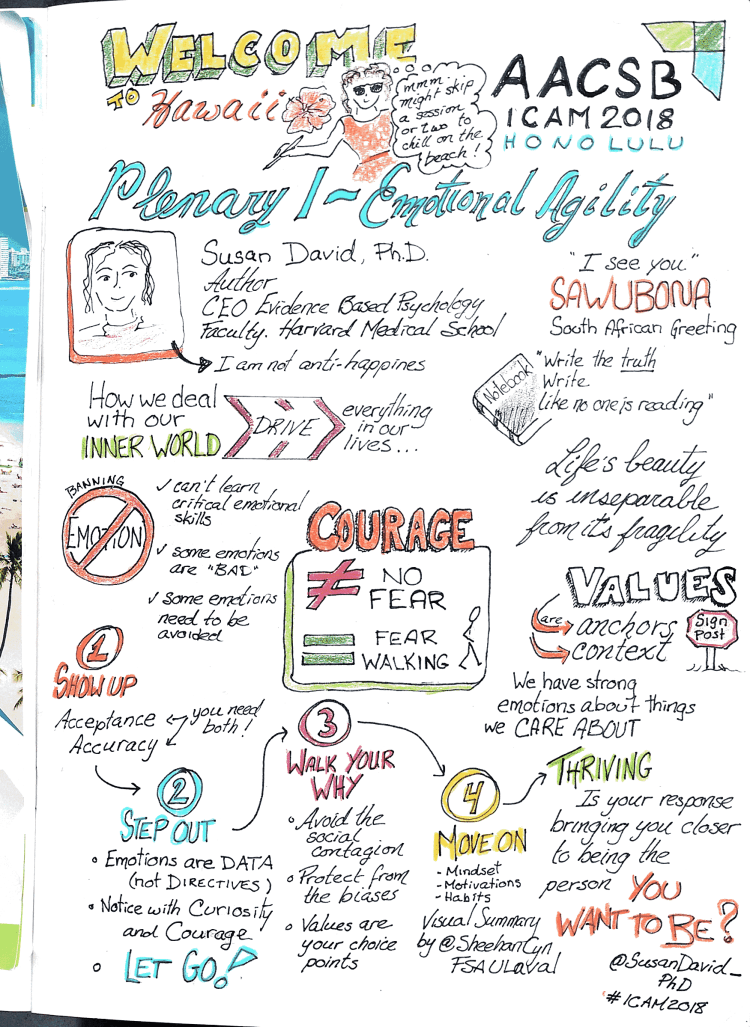 WELCOME
TO Hawaii
mmm skip
might skip
a session
or two to
chill on the
beach!
AACSB
ICAM 2018
HONOLULU
Plenary 1 ~ Emotional Agility
Susan David, Ph.D.
Author
CEO Evidence Based Psychology
Faculty. Harvard Medical School
I am not anti-happines
"I see you."
SAWUBONA
South African Greeting
Notebook
"Write the truth
Write
like no one is reading"
How we deal
with our
INNER WORLD
DRIVE
everything
in our
lives...
Life's beauty
is inseparable
from it's fragility
BANNING
EMOTION
✓ can't learn
critical emotional
skills
✓ some emotions
are "BAD"
✓ some emotions
need to be
avoided
COURAGE
≠ NO
FEAR
= FEAR
WALKING
VALUES
are anchors
context
Sign
Post
We have strong
emotions about things
we CARE ABOUT
1
SHOW UP
Acceptance
Accuracy
you need
both!
2
STEP OUT
• Emotions are DATA
(not DIRECTIVES)
• Notice with Curiosity
and Courage
• LET GO!
3
WALK YOUR
WHY
• Avoid the
social
contagion
• Protect from
the biases
• Values are
your choice
points
4
MOVE ON
- Mindset
- Motivations
- Habits
THRIVING
Is your response
bringing you closer
to being the
person YOU
WANT TO BE?
Visual Summary
by @SheehanCyn
FSAULaval
@SusanDavid_
PhD
#ICAM2018